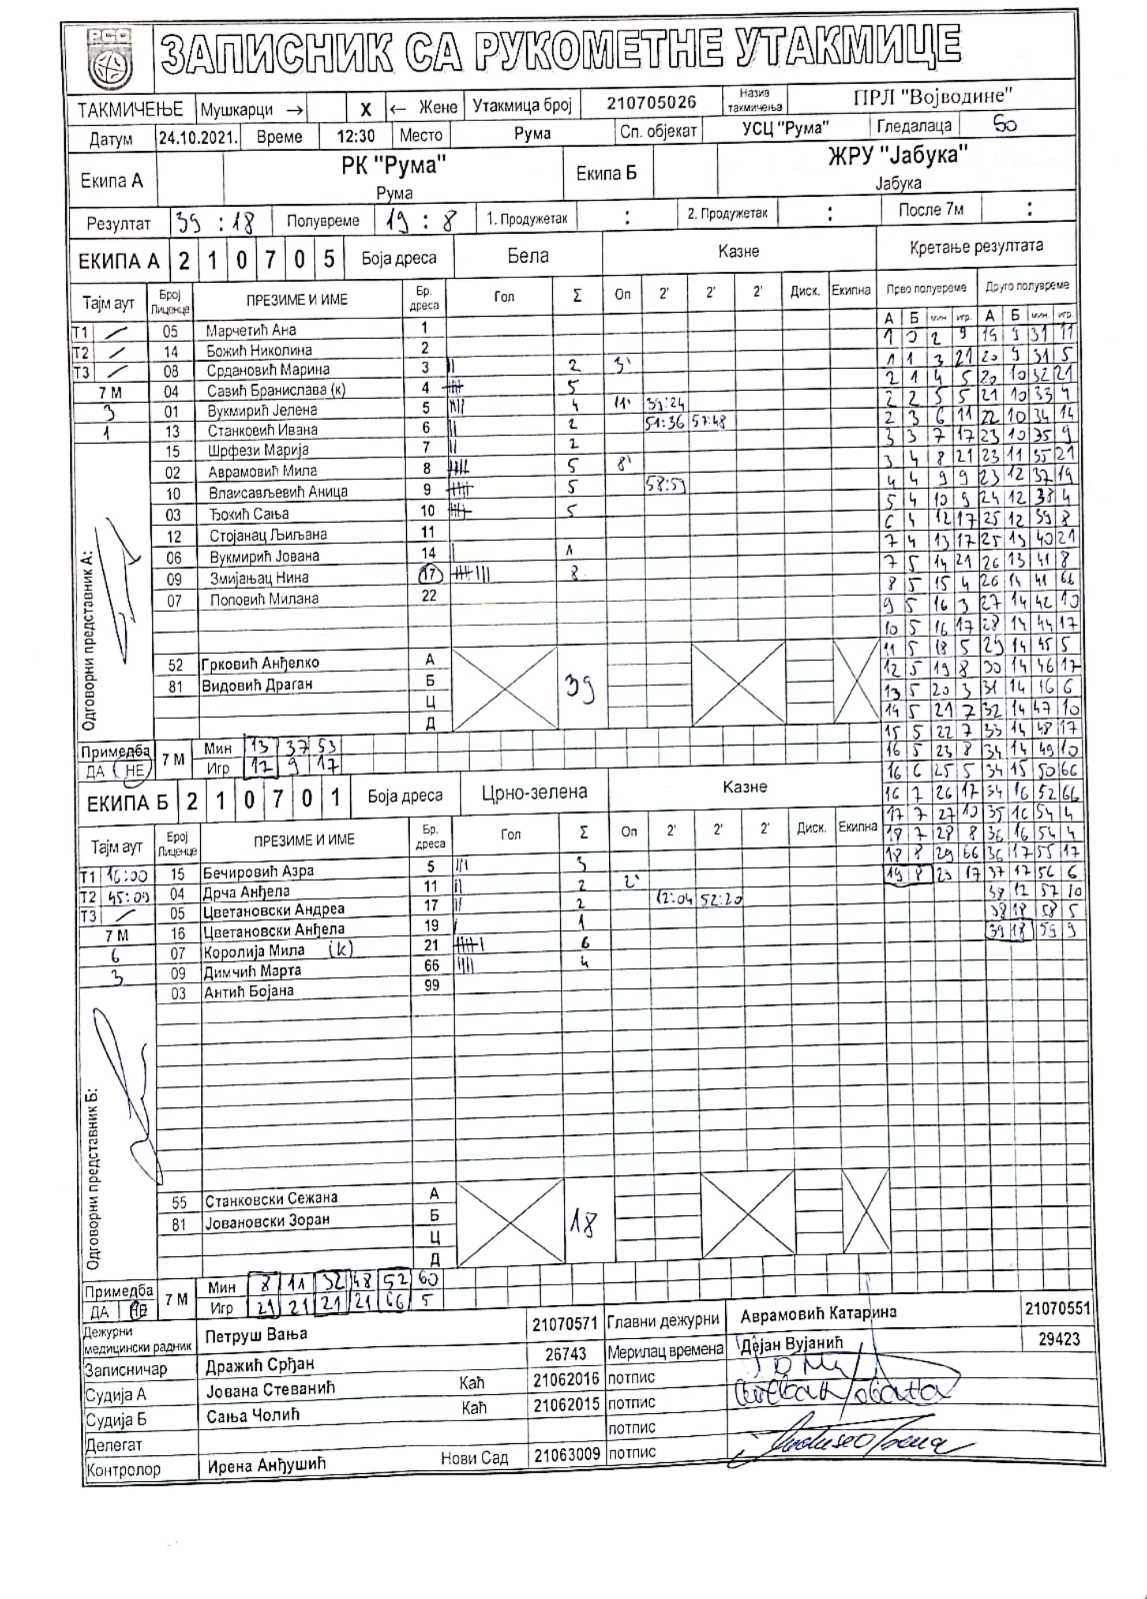 РСС
ЗАПИСНИК СА РУКОМЕТНЕ УТАКМИЦЕ
ТАКМИЧЕЊЕ Мушкарци → X ← Жене Утакмица број 210705026 Назив такмичења ПРЛ "Војводине"
Датум 24.10.2021. Време 12:30 Место Рума Сп. објекат УСЦ "Рума" Гледалаца 50
Екипа А РК "Рума" Рума Екипа Б ЖРУ "Јабука" Јабука
Резултат 39 : 18 Полувреме 19 : 8 1. Продужетак : 2. Продужетак : После 7м :
ЕКИПА А 2 1 0 7 0 5 Боја дреса Бела Казне Кретање резултата
Тајм аут Број Лиценце ПРЕЗИМЕ И ИМЕ Бр. дреса Гол Σ Оп 2' 2' 2' Диск. Екипна Прво полувреме Друго полувреме
А Б мин игр. А Б мин. игр.
Т1 / 05 Марчетић Ана 1
Т2 / 14 Божић Николина 2
Т3 / 08 Срдановић Марина 3 2 3'
7 М 04 Савић Бранислава (к) 4 5
3 01 Вукмирић Јелена 5 4 11' 33:24
1 13 Станковић Ивана 6 2 51:36 57:48
15 Шрфези Марија 7 2
02 Аврамовић Мила 8 5 8'
10 Влаисављевић Аница 9 5 58:59
03 Ђокић Сања 10 5
12 Стојанац Љиљана 11
06 Вукмирић Јована 14 1
09 Змијањац Нина 17 8
07 Поповић Милана 22
52 Грковић Анђелко А
81 Видовић Драган Б
Ц
Д
39
Одговорни представник А:
1 0 2 9 19 9 31 11
1 1 3 21 20 9 31 5
2 1 4 5 20 10 32 21
2 2 5 5 21 10 33 4
2 3 6 11 22 10 34 14
3 3 7 17 23 10 35 9
3 4 8 21 23 11 35 21
4 4 9 9 23 12 37 19
5 4 10 9 24 12 38 4
6 4 12 17 25 12 39 8
7 4 13 17 25 13 40 21
7 5 14 21 26 13 41 8
8 5 15 4 26 14 41 66
9 5 16 3 27 14 42 10
10 5 16 17 28 14 44 17
11 5 18 5 29 14 45 5
12 5 19 8 30 14 46 17
13 5 20 3 31 14 46 6
14 5 21 7 32 14 47 10
15 5 22 7 33 14 48 17
16 5 23 8 34 14 49 10
16 6 25 5 34 15 50 66
16 7 26 17 34 16 52 66
17 7 27 10 35 16 54 4
18 7 28 8 36 16 54 4
18 8 29 66 36 17 55 17
19 8 29 17 37 17 56 6
38 17 57 10
38 18 58 5
39 18 59 9
Примедба ДА НЕ 7 М Мин 13 37 53
Игр 17 9 17
ЕКИПА Б 2 1 0 7 0 1 Боја дреса Црно-зелена Казне
Тајм аут Број Лиценце ПРЕЗИМЕ И ИМЕ Бр. дреса Гол Σ Оп 2' 2' 2' Диск. Екипна
Т1 16:00 15 Бечировић Азра 5 3
Т2 45:00 04 Дрча Анђела 11 2 2'
Т3 / 05 Цветановски Андреа 17 2 12:04 52:20
7 М 16 Цветановски Анђела 19 1
6 07 Королија Мила (к) 21 6
3 09 Димчић Марта 66 4
03 Антић Бојана 99
Одговорни представник Б:
55 Станковски Сежана А
81 Јовановски Зоран Б
Ц
Д
18
Примедба ДА НЕ 7 М Мин 8 11 32 48 52 60
Игр 21 21 21 21 66 5
Дежурни медицински радник Петруш Вања 21070571 Главни дежурни Аврамовић Катарина 21070551
Записничар Дражић Срђан 26743 Мерилац времена Дејан Вујанић 29423
Судија А Јована Стеванић Каћ 21062016 потпис
Судија Б Сања Чолић Каћ 21062015 потпис
Делегат потпис
Контролор Ирена Анђушић Нови Сад 21063009 потпис